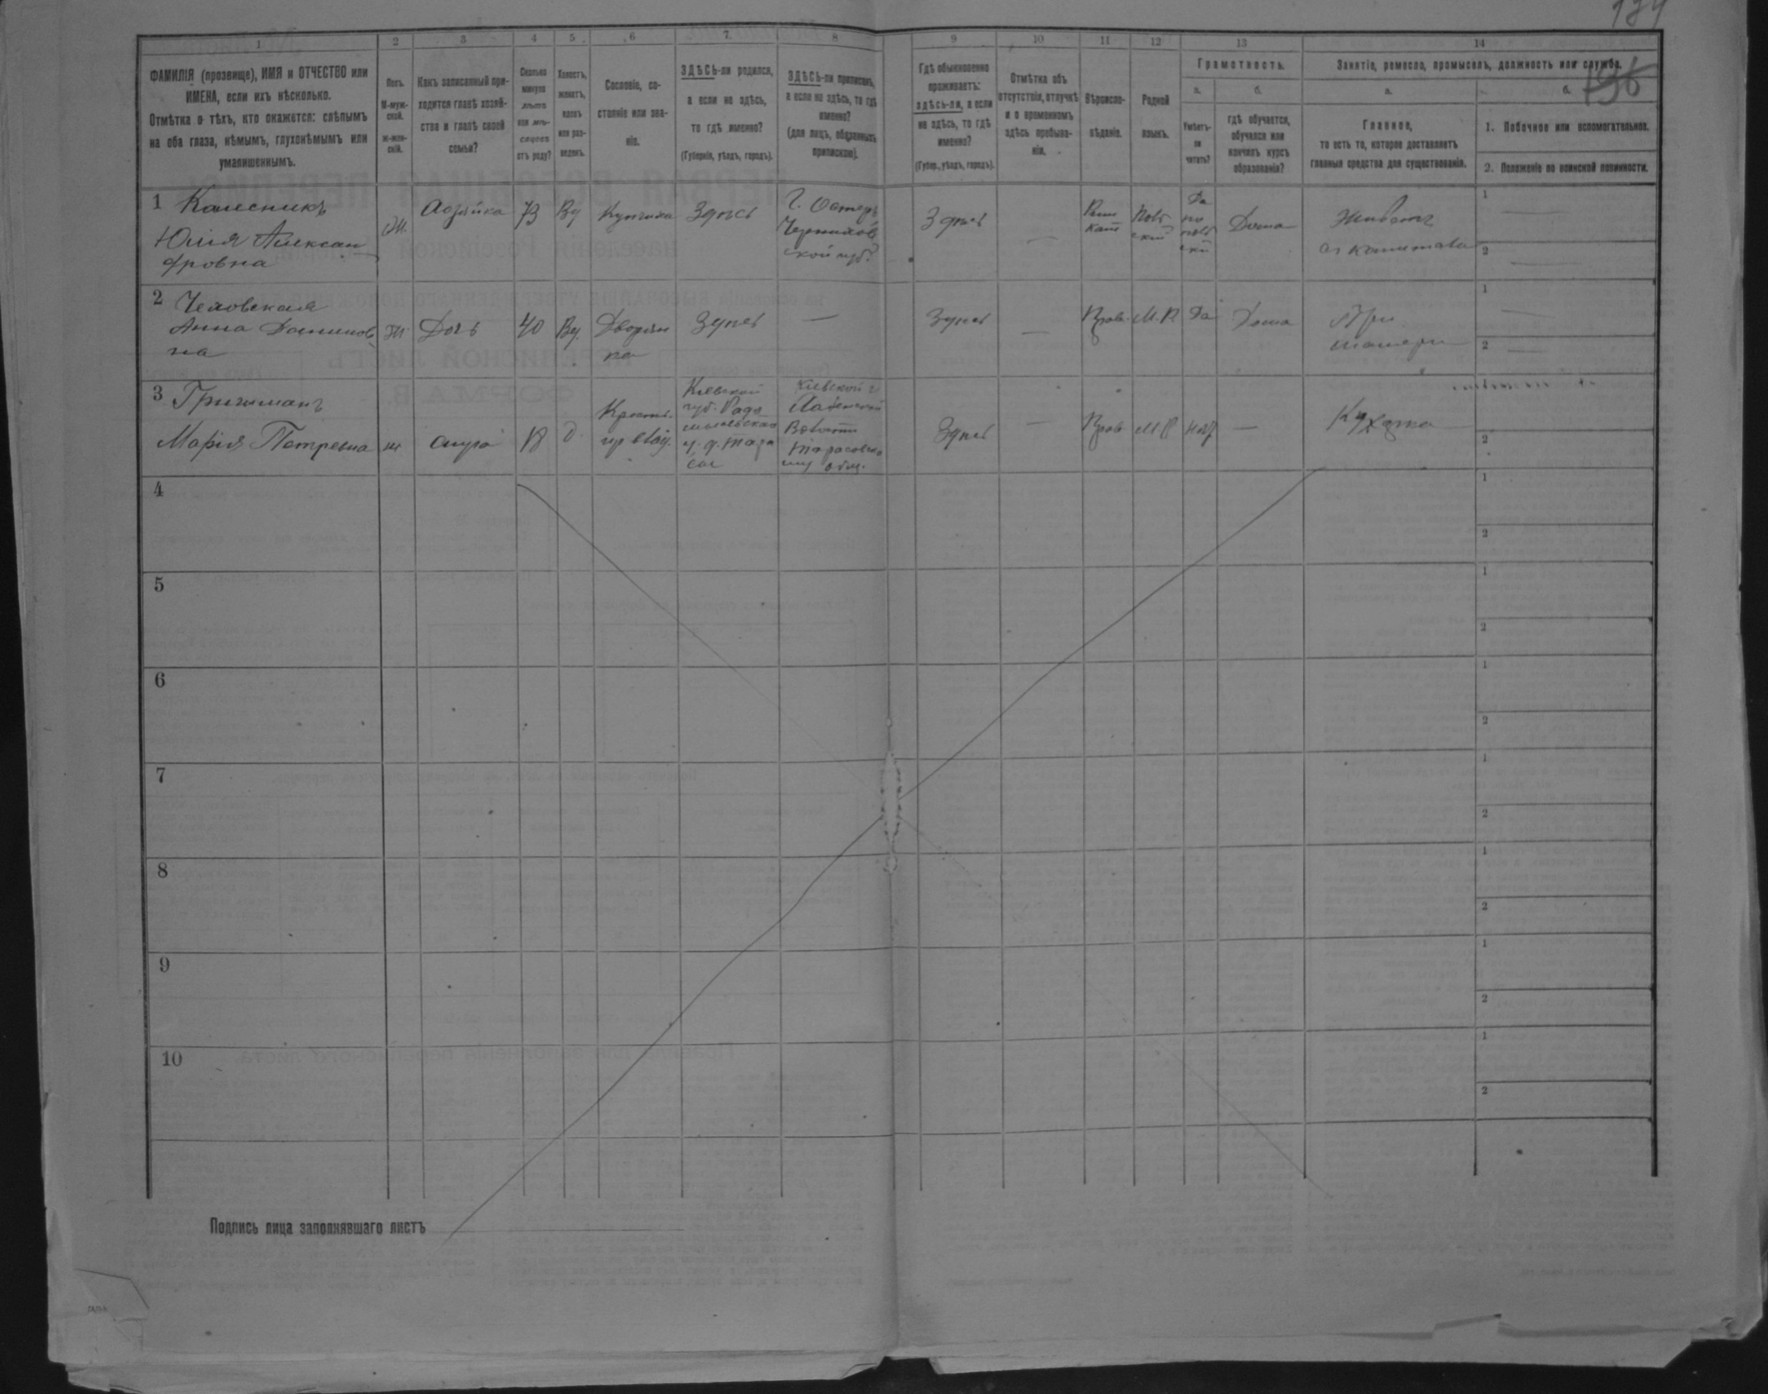 134
136
1 2 3 4 5 6 7 8 9 10 11 12 13 14
ФАМИЛІЯ (прозвище), ИМЯ и ОТЧЕСТВО или
ИМЕНА, если ихъ нѣсколько.
Отмѣтка о тѣхъ, кто окажется: слѣпымъ
на оба глаза, нѣмымъ, глухонѣмымъ или
умалишеннымъ.
Полъ.
М-муж-
ской.
Ж-жен-
скій.
Какъ записанный при-
ходится главѣ хозяй-
ства и главѣ своей
семьи?
Сколько
минуло
лѣтъ
или мѣ-
сяцевъ
отъ роду?
Холостъ,
женатъ,
вдовъ
или раз-
веденъ.
Сословіе, со-
стояніе или зва-
ніе.
ЗДѢСЬ-ли родился,
а если не здѣсь,
то гдѣ именно?
(Губернія, уѣздъ, городъ).
ЗДѢСЬ-ли приписанъ,
а если не здѣсь, то гдѣ
именно?
(для лицъ, обязанныхъ
припискою).
Гдѣ обыкновенно
проживаетъ:
здѣсь-ли, а если
не здѣсь, то гдѣ
именно?
(Губер., уѣздъ, городъ).
Отмѣтка объ
отсутствіи, отлучкѣ
и о временномъ
здѣсь пребыва-
ніи.
Вѣроиспо-
вѣданіе.
Родной
языкъ.
Грамотность.
а.
Умѣетъ-
ли
читать?
б.
гдѣ обучается,
обучался или
кончилъ курсъ
образованія?
Занятіе, ремесло, промыселъ, должность или служба.
а.
Главное,
то есть то, которое доставляетъ
главныя средства для существованія.
б.
1. Побочное или вспомогательное.
2. Положеніе по воинской повинности.
1 Колесникъ
Юлія Алексан
дровна
Ж.
Хозяйка
73
Вд
Купчиха
Здѣсь
Г. Остеръ
Чернигов
ской губ.
Здѣсь
—
Рим
кат
Поль
скій
Да
по
поль
ски
Дома
Живетъ
съ капитала
1 —
2 —
2
Анна Даниилов
на
Ж
Дочь
40
Вд.
Дворян
ка
Здѣсь
—
Здѣсь
—
Прав.
М. Р.
Да
Дома
При
матери
1 —
2 —
3
Марія Петровна
ж
слуга
18
д.
Крестьян.
Кіевской
губ. Радо
мысльскаго
у. д. Тара
сы
Кіевской г.
Волости
Тарасовско
му общ.
Здѣсь
—
Прав
М Р
нѣт
—
Кухарка
2
4
1
2
5
1
2
6
1
2
7
1
2
8
1
2
9
1
2
10
1
2
Подпись лица заполнявшаго листъ